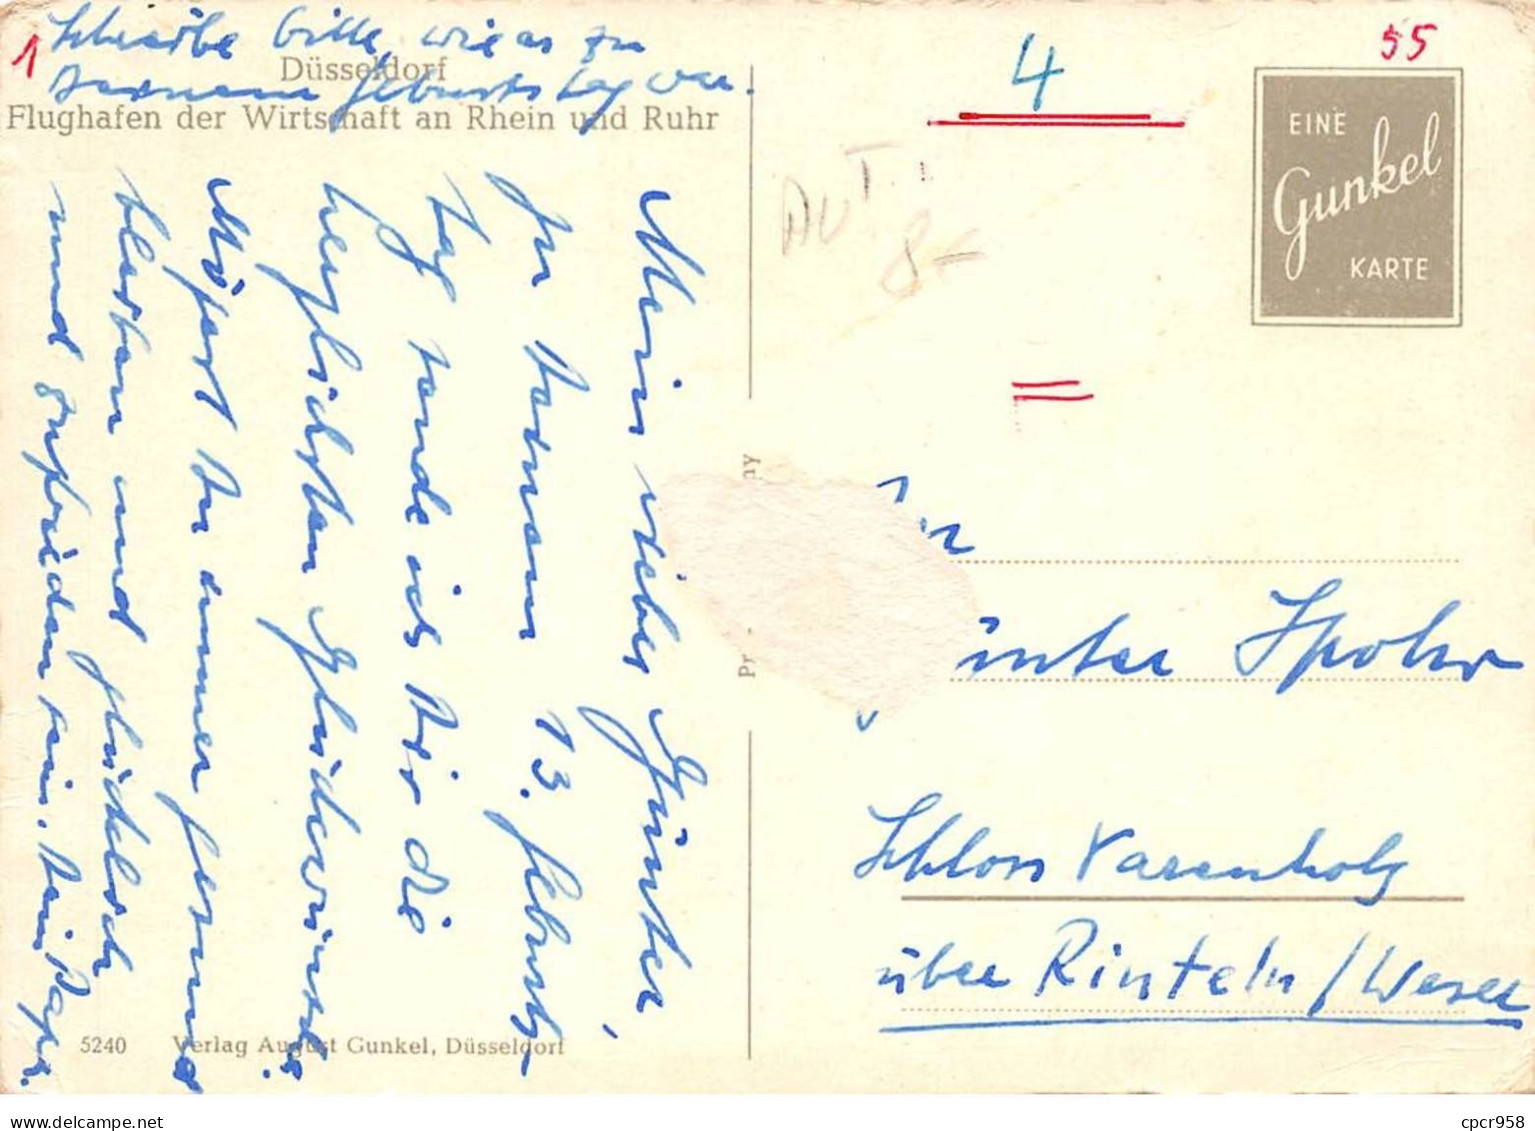 Schreibe bitte, wie es zu
Deinem Geburtstag war.
1
Düsseldorf
Flughafen der Wirtschaft an Rhein und Ruhr
Mein lieber Günter,
zu Deinem 13. Geburts-
tag sende ich Dir die
herzlichsten Glückwünsche.
Mögest Du immer gesund
bleiben und glücklich
und zufrieden sein. Dein Papa.
5240 Verlag August Gunkel, Düsseldorf
4
55
EINE
Gunkel
KARTE
AUT.
8
ünter Spohr
Schloss Varenholz
über Rinteln/Weser
cpcr958